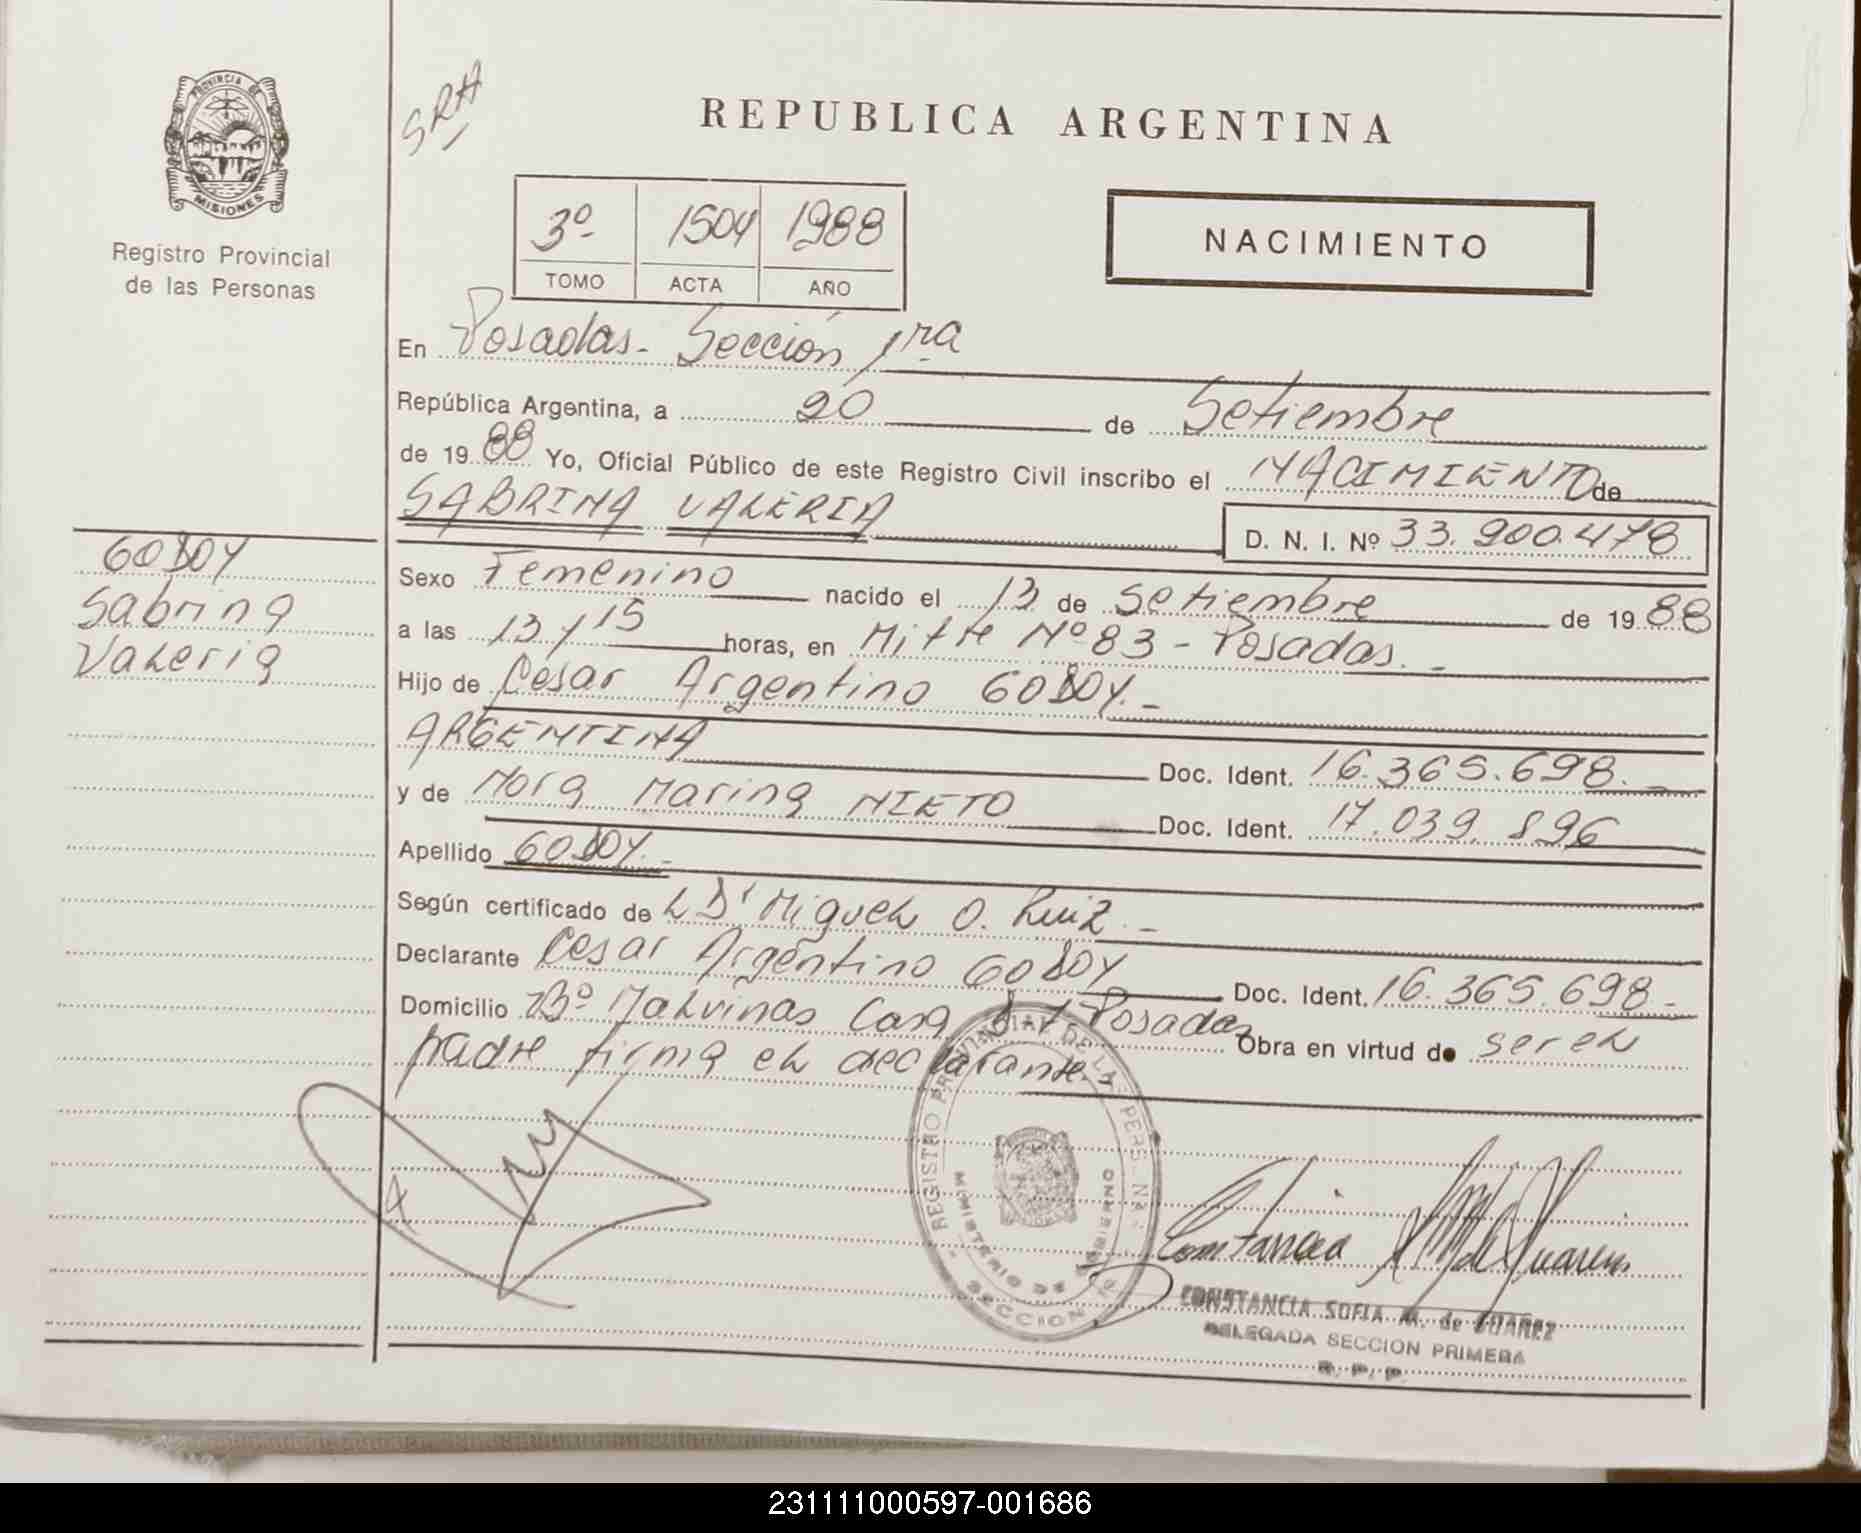 PROVINCIA DE
MISIONES
Registro Provincial
de las Personas
SRA
REPUBLICA ARGENTINA
3º- 1504 1988
TOMO ACTA AÑO
NACIMIENTO
En Posadas - Sección 1ra
República Argentina, a 20 de Setiembre
de 19 88 Yo, Oficial Público de este Registro Civil inscribo el NACIMIENTO de
SABRINA VALERIA
D. N. I. Nº 33.900.478
GODOY
Sabrina
Valeria
Sexo Femenino nacido el 13 de Setiembre de 19 88
a las 13 y 15 horas, en Mitre Nº 83 - Posadas. -
Hijo de Cesar Argentino GODOY. -
ARGENTINA Doc. Ident. 16.365.698. -
y de Nora Marina NIETO Doc. Ident. 17.039.896
Apellido GODOY. -
Según certificado de L Dr Miguel O. Ruiz. -
Declarante Cesar Argentino GODOY Doc. Ident. 16.365.698 -
Domicilio Bº Malvinas Casa Posadas Obra en virtud de ser el
padre firma el declarante. -
REGISTRO PROVINCIAL DE LAS PERSONAS
MINISTERIO DE GOBIERNO
SECCION
Constancia M de Suarez
CONSTANCIA SOFIA M. de SUAREZ
DELEGADA SECCION PRIMERA
R. P. P.
231111000597-001686